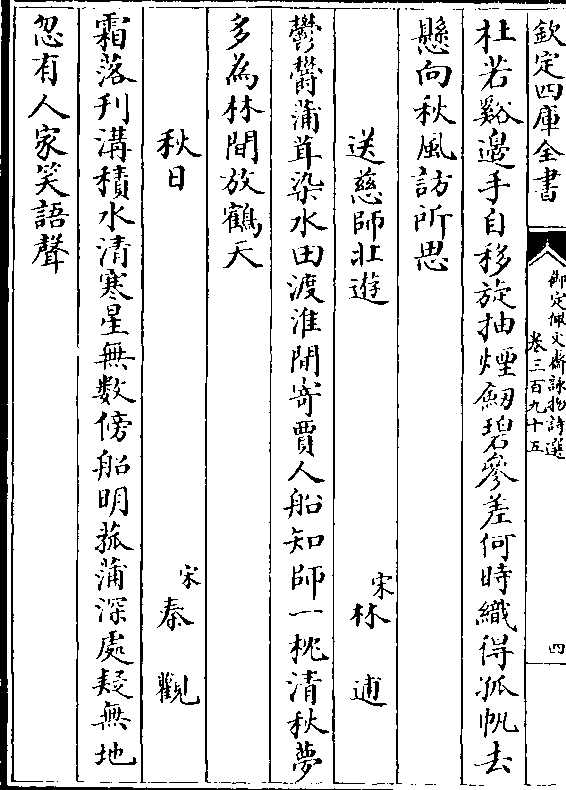 欽定四庫全書
御定佩文齋詠物詩選
卷三百九十五
四
杜若谿邊手自移旋抽煙劒碧參差何時織得孤帆去
懸向秋風訪所思
送慈師北遊
宋
林逋
鬱鬱蒲茸染水田渡淮閒寄賈人船知師一枕清秋夢
多為林間放鶴天
秋日
宋
秦觀
霜落刋溝積水清寒星無數傍船明菰蒲深處疑無地
忽有人家笑語聲